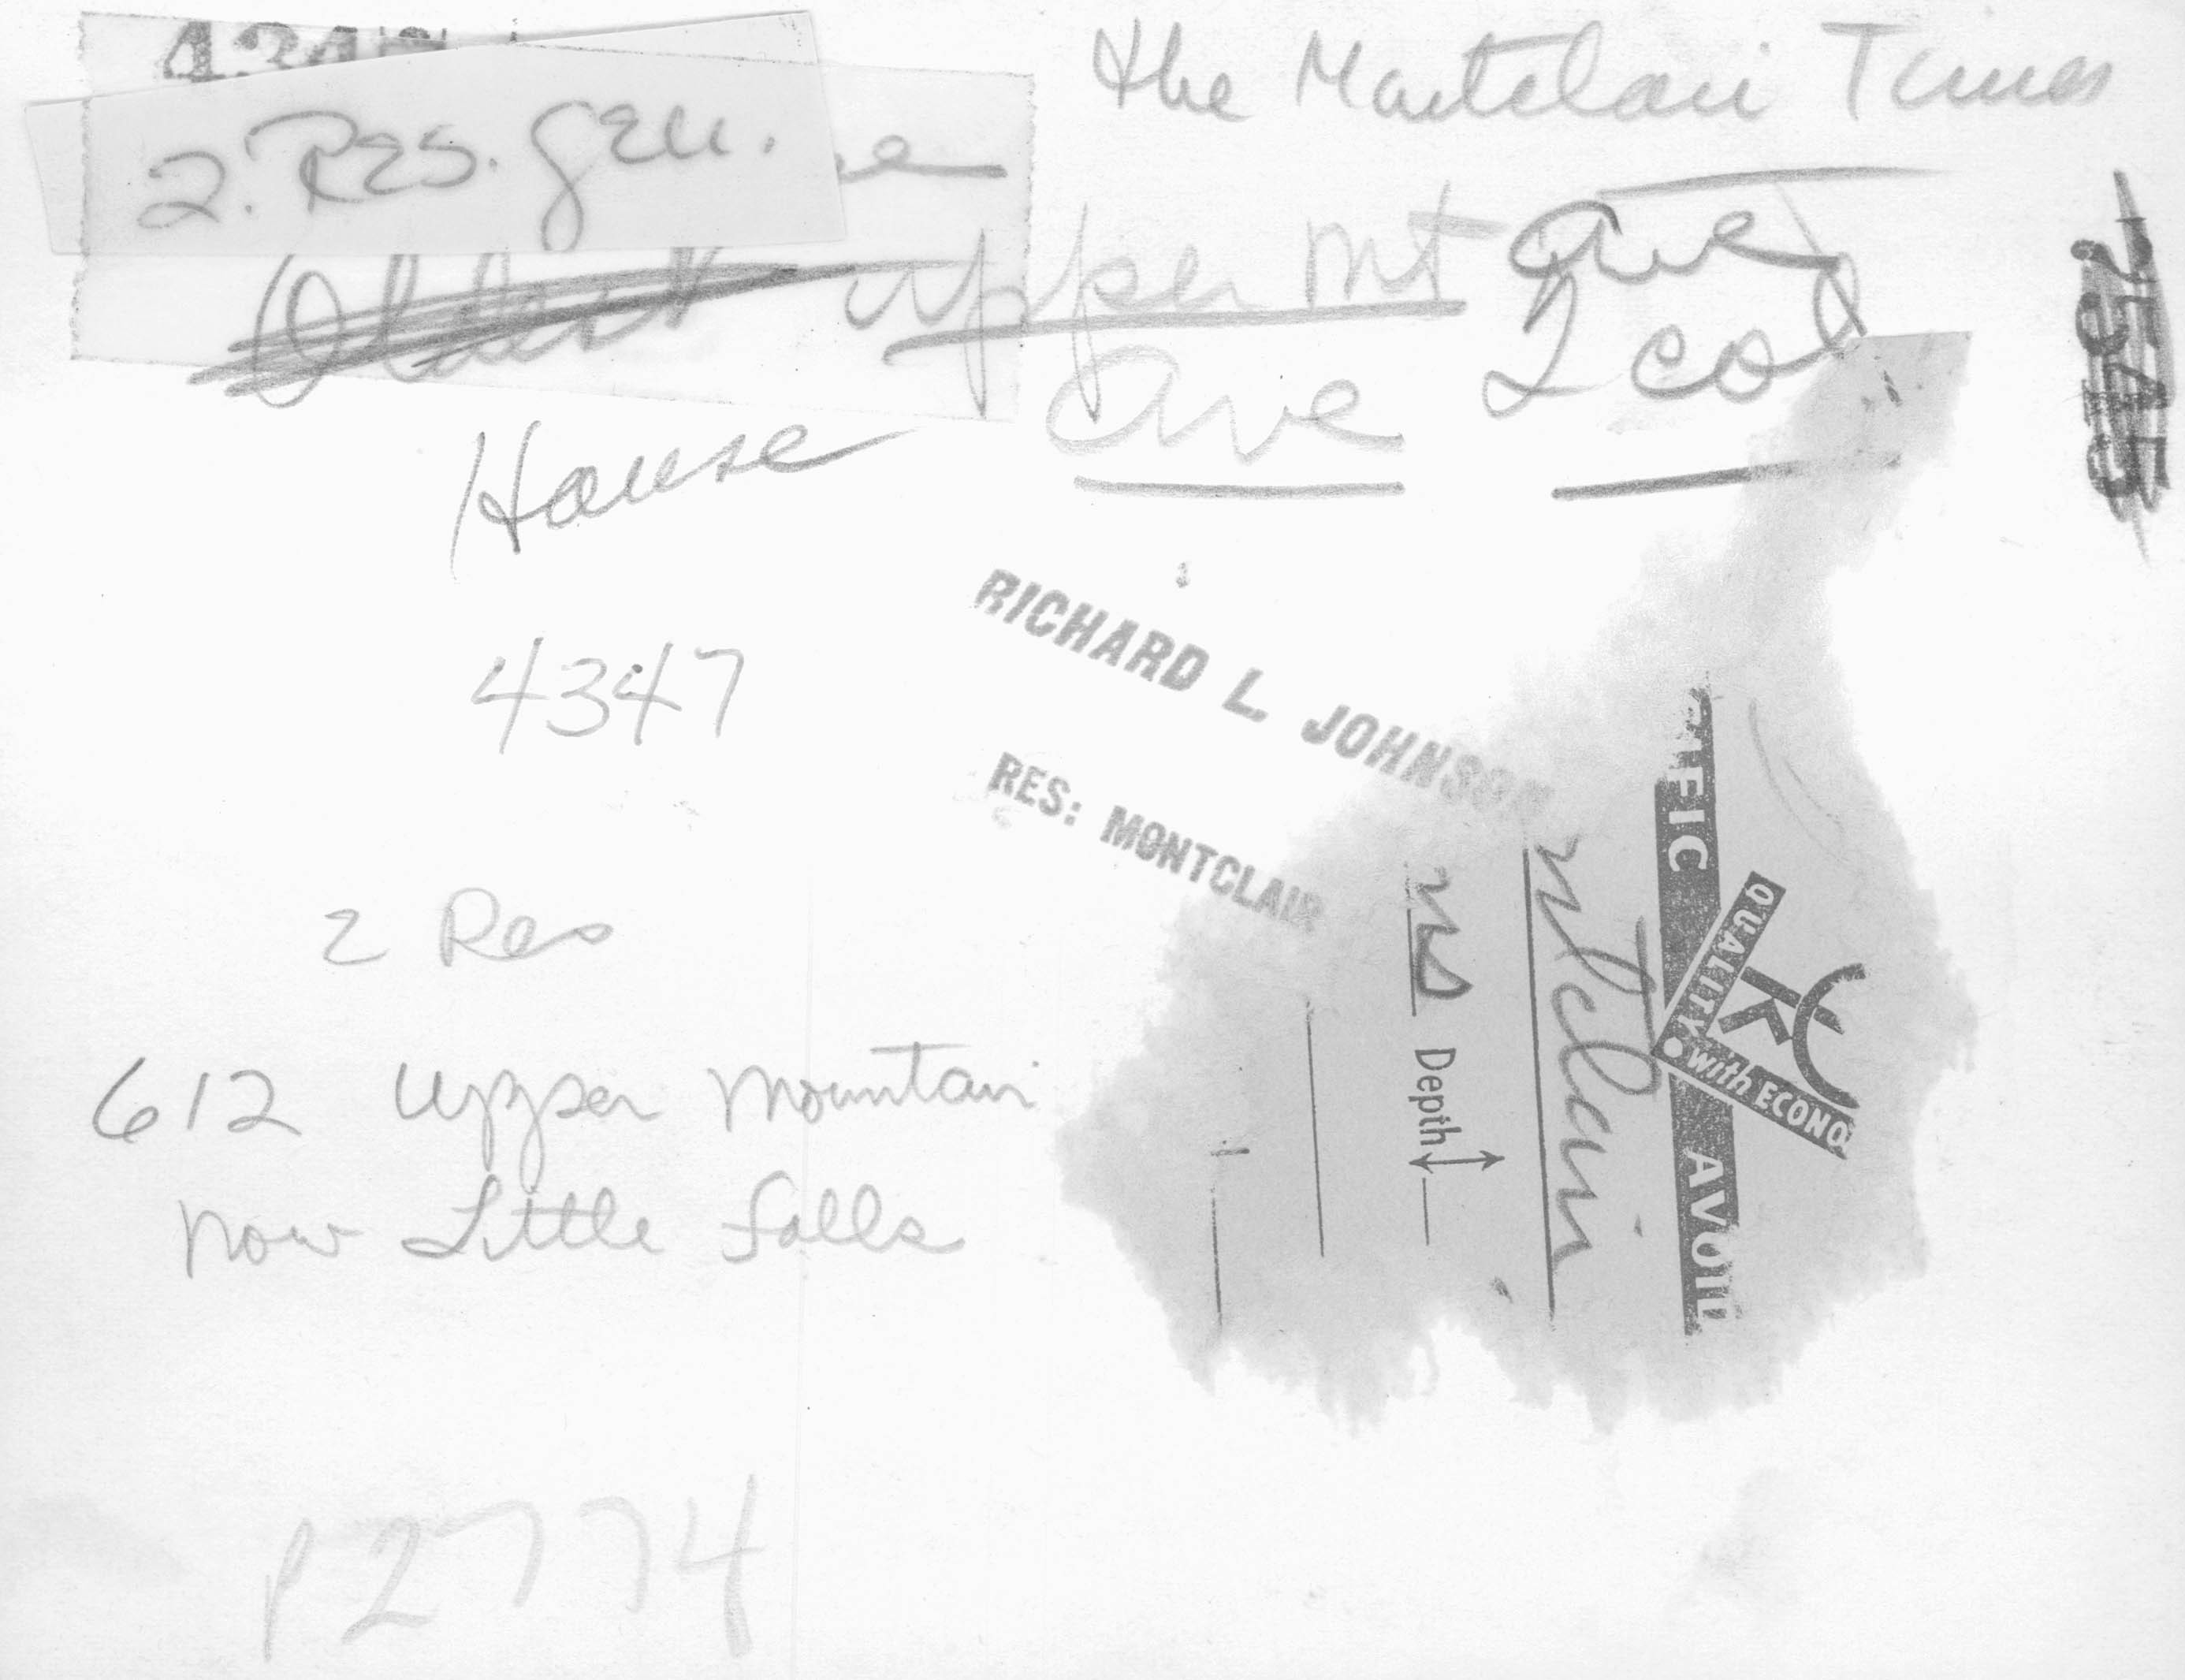 the Montclair Times
2. Res. gen.
Oldest upper Mt ave
House Ave 2 col
7545
4347
RICHARD L. JOHNSON
RES: MONTCLAIR
2 Res
612 Upper Mountain
now Little Falls
P2774
FIC AVOID
QUALITY with ECONO
ntclair
ns Depth